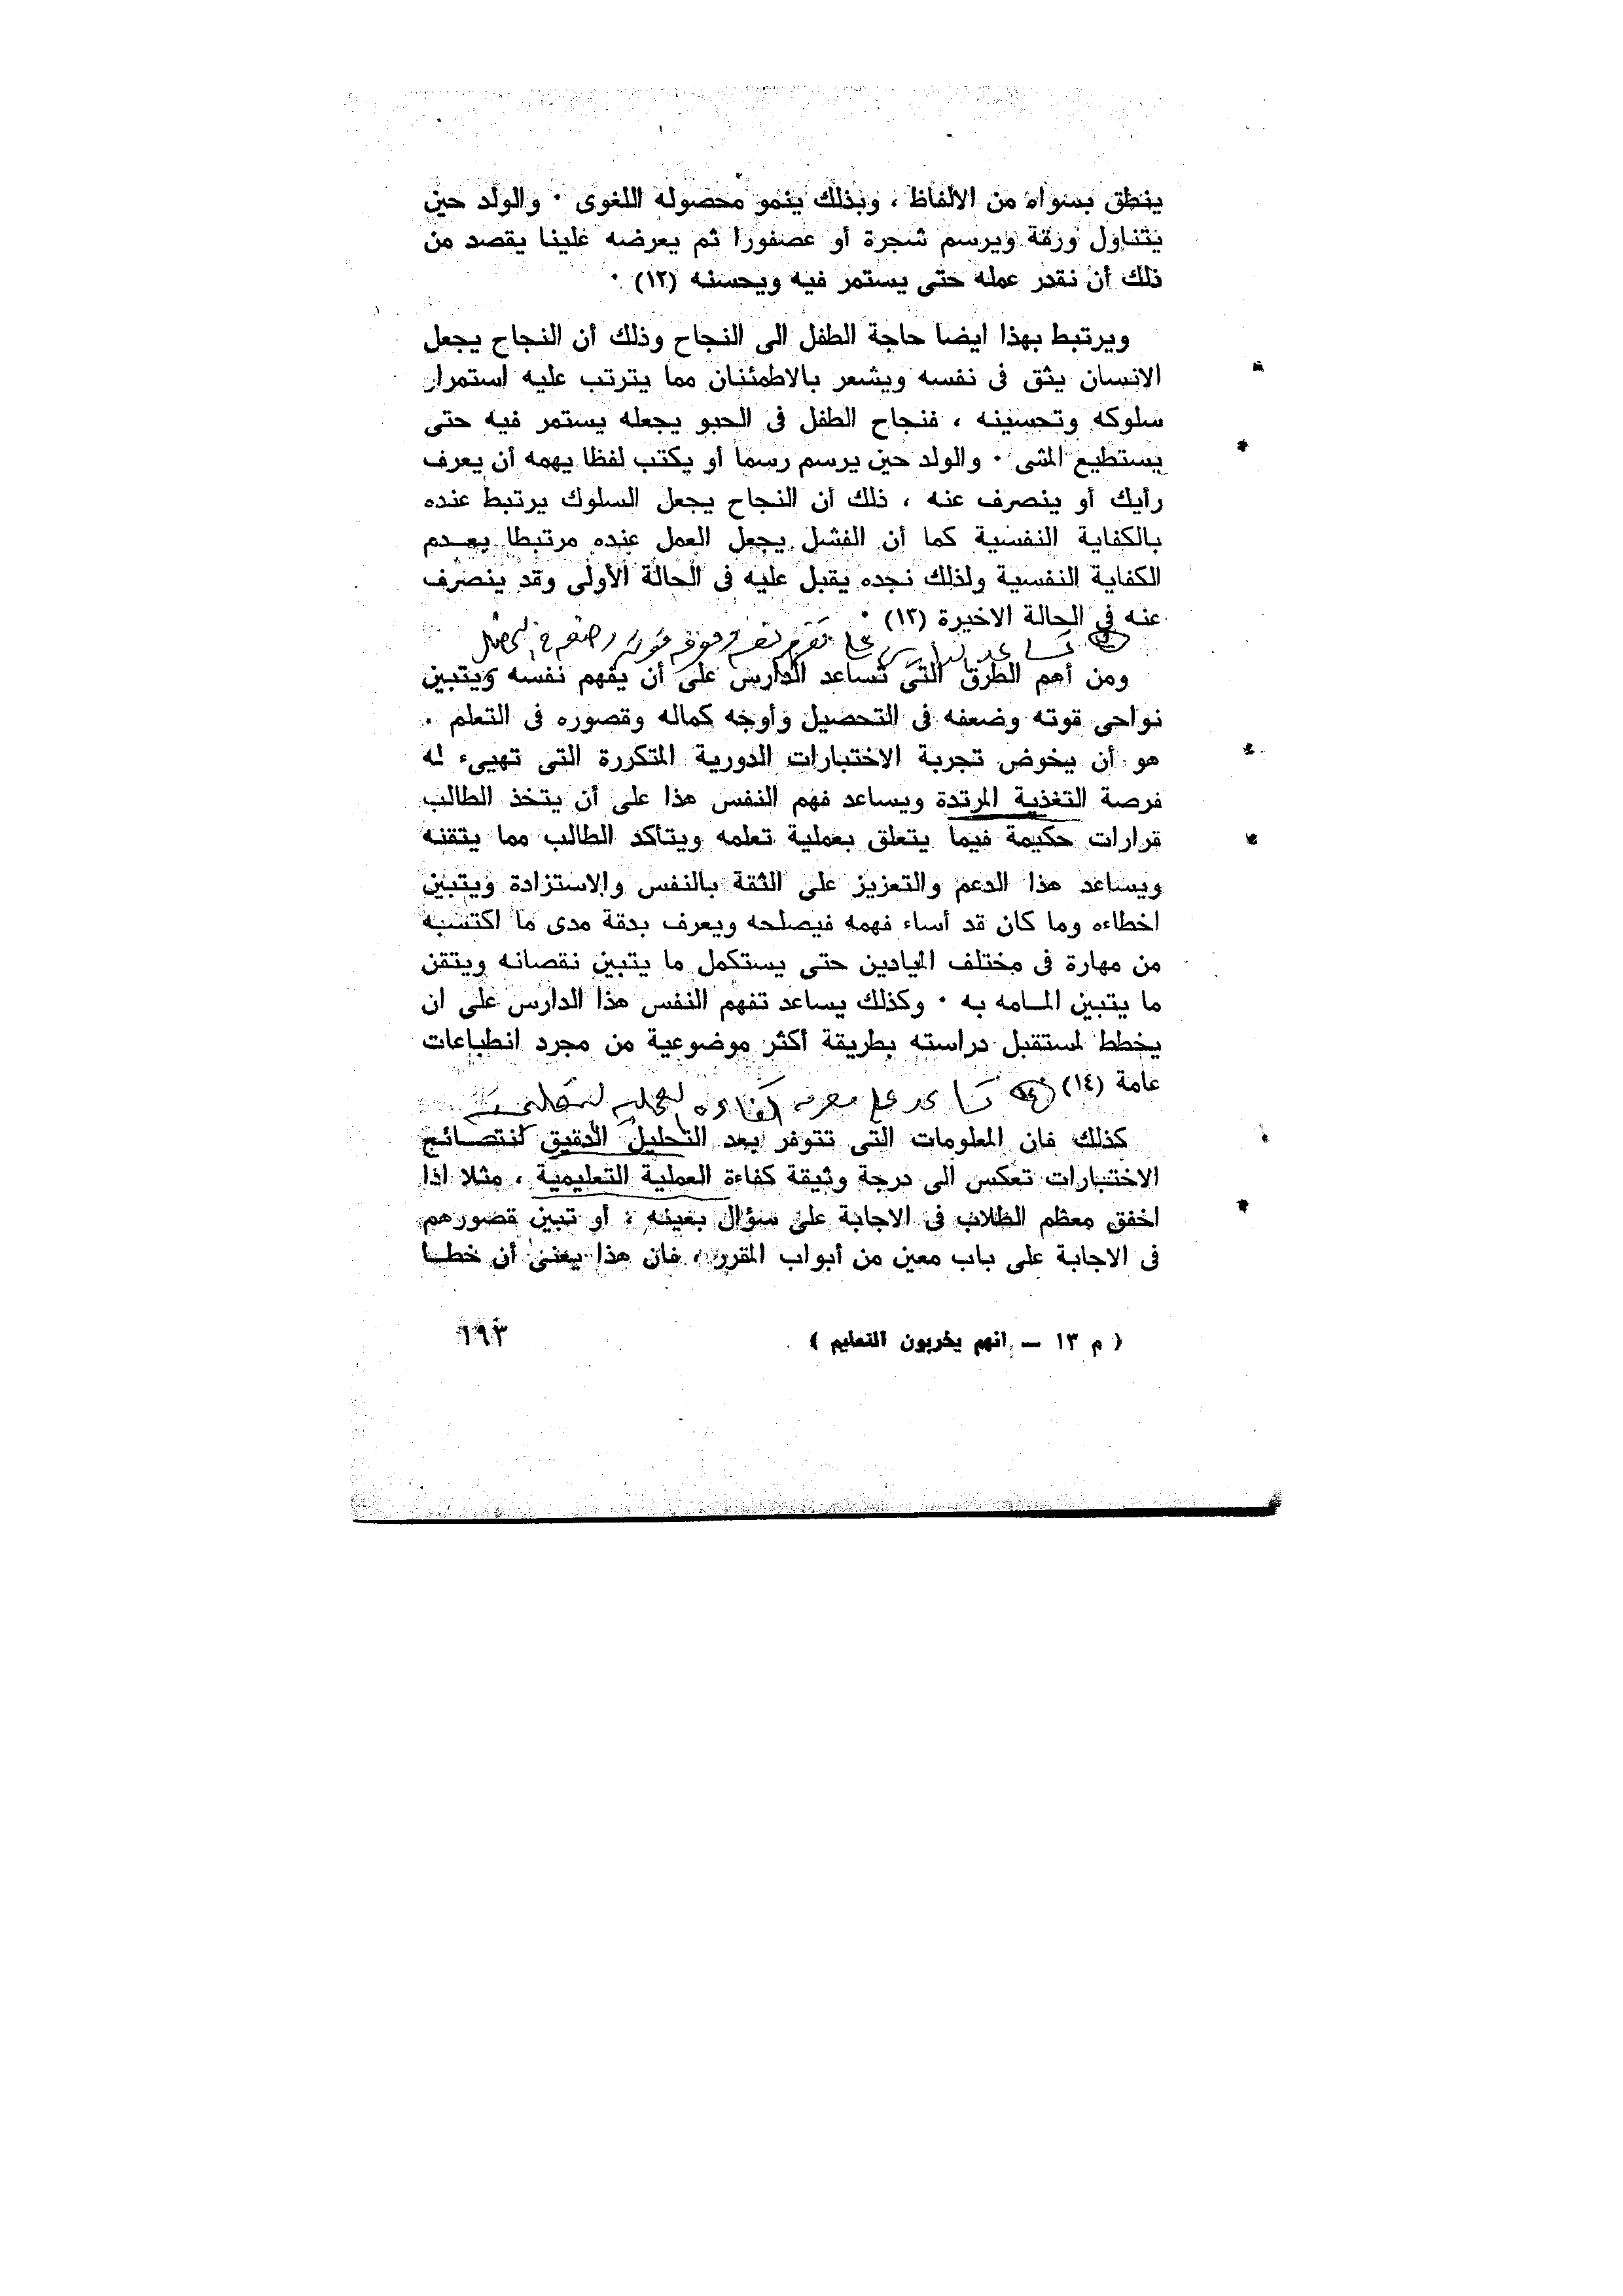 ينطق بسواه من الالفاظ ، وبذلك ينمو محصوله اللغوى · والولد حين
يتناول ورقة ويرسم شجرة أو عصفورا ثم يعرضه علينا يقصد من
ذلك أن نقدر عمله حتى يستمر فيه ويحسنه (١٢) ·
ويرتبط بهذا ايضا حاجة الطفل الى النجاح وذلك أن النجاح يجعل
الانسان يثق فى نفسه ويشعر بالاطمئنان مما يترتب عليه استمرار
سلوكه وتحسينه ، فنجاح الطفل فى الحبو يجعله يستمر فيه حتى
يستطيع المشى · والولد حين يرسم رسما أو يكتب لفظا يهمه أن يعرف
رأيك أو ينصرف عنه ، ذلك أن النجاح يجعل السلوك يرتبط عنده
بالكفاية النفسية كما أن الفشل يجعل العمل عنده مرتبطا بعـدم
الكفاية النفسية ولذلك نجده يقبل عليه فى الحالة الأولى وقد ينصرف
عنه فى الحالة الاخيرة (١٣) ·
تساعد على نفسه قوته
ومن أهم الطرق التى تساعد الدارس على أن يفهم نفسه ويتبين
نواحى قوته وضعفه فى التحصيل وأوجه كماله وقصوره فى التعلم .
هو أن يخوض تجربة الاختبارات الدورية المتكررة التى تهيىء له
فرصة التغذية المرتدة ويساعد فهم النفس هذا على أن يتخذ الطالب
قرارات حكيمة فيما يتعلق بعملية تعلمه ويتأكد الطالب مما يتقنه
ويساعد هذا الدعم والتعزيز على الثقة بالنفس والاستزادة ويتبين
اخطاءه وما كان قد أساء فهمه فيصلحه ويعرف بدقة مدى ما اكتسبه
من مهارة فى مختلف الميادين حتى يستكمل ما يتبين نقصانه ويتقن
ما يتبين المـامه به · وكذلك يساعد تفهم النفس هذا الدارس على ان
يخطط لمستقبل دراسته بطريقة أكثر موضوعية من مجرد انطباعات
عامة (١٤)
تساعد على معرفة كفاءة العملية التعليمية
كذلك فان المعلومات التى تتوفر بعد التحليل الدقيق لنتـائج
الاختبارات تعكس الى درجة وثيقة كفاءة العملية التعليمية ، مثلا اذا
اخفق معظم الطلاب فى الاجابة على سؤال بعينه ؛ أو تبين قصورهم
فى الاجابة على باب معين من أبواب المقرر ، فان هذا يعنى أن خطـا
( م ١٣ — انهم يخربون التعليم )
١٩٣